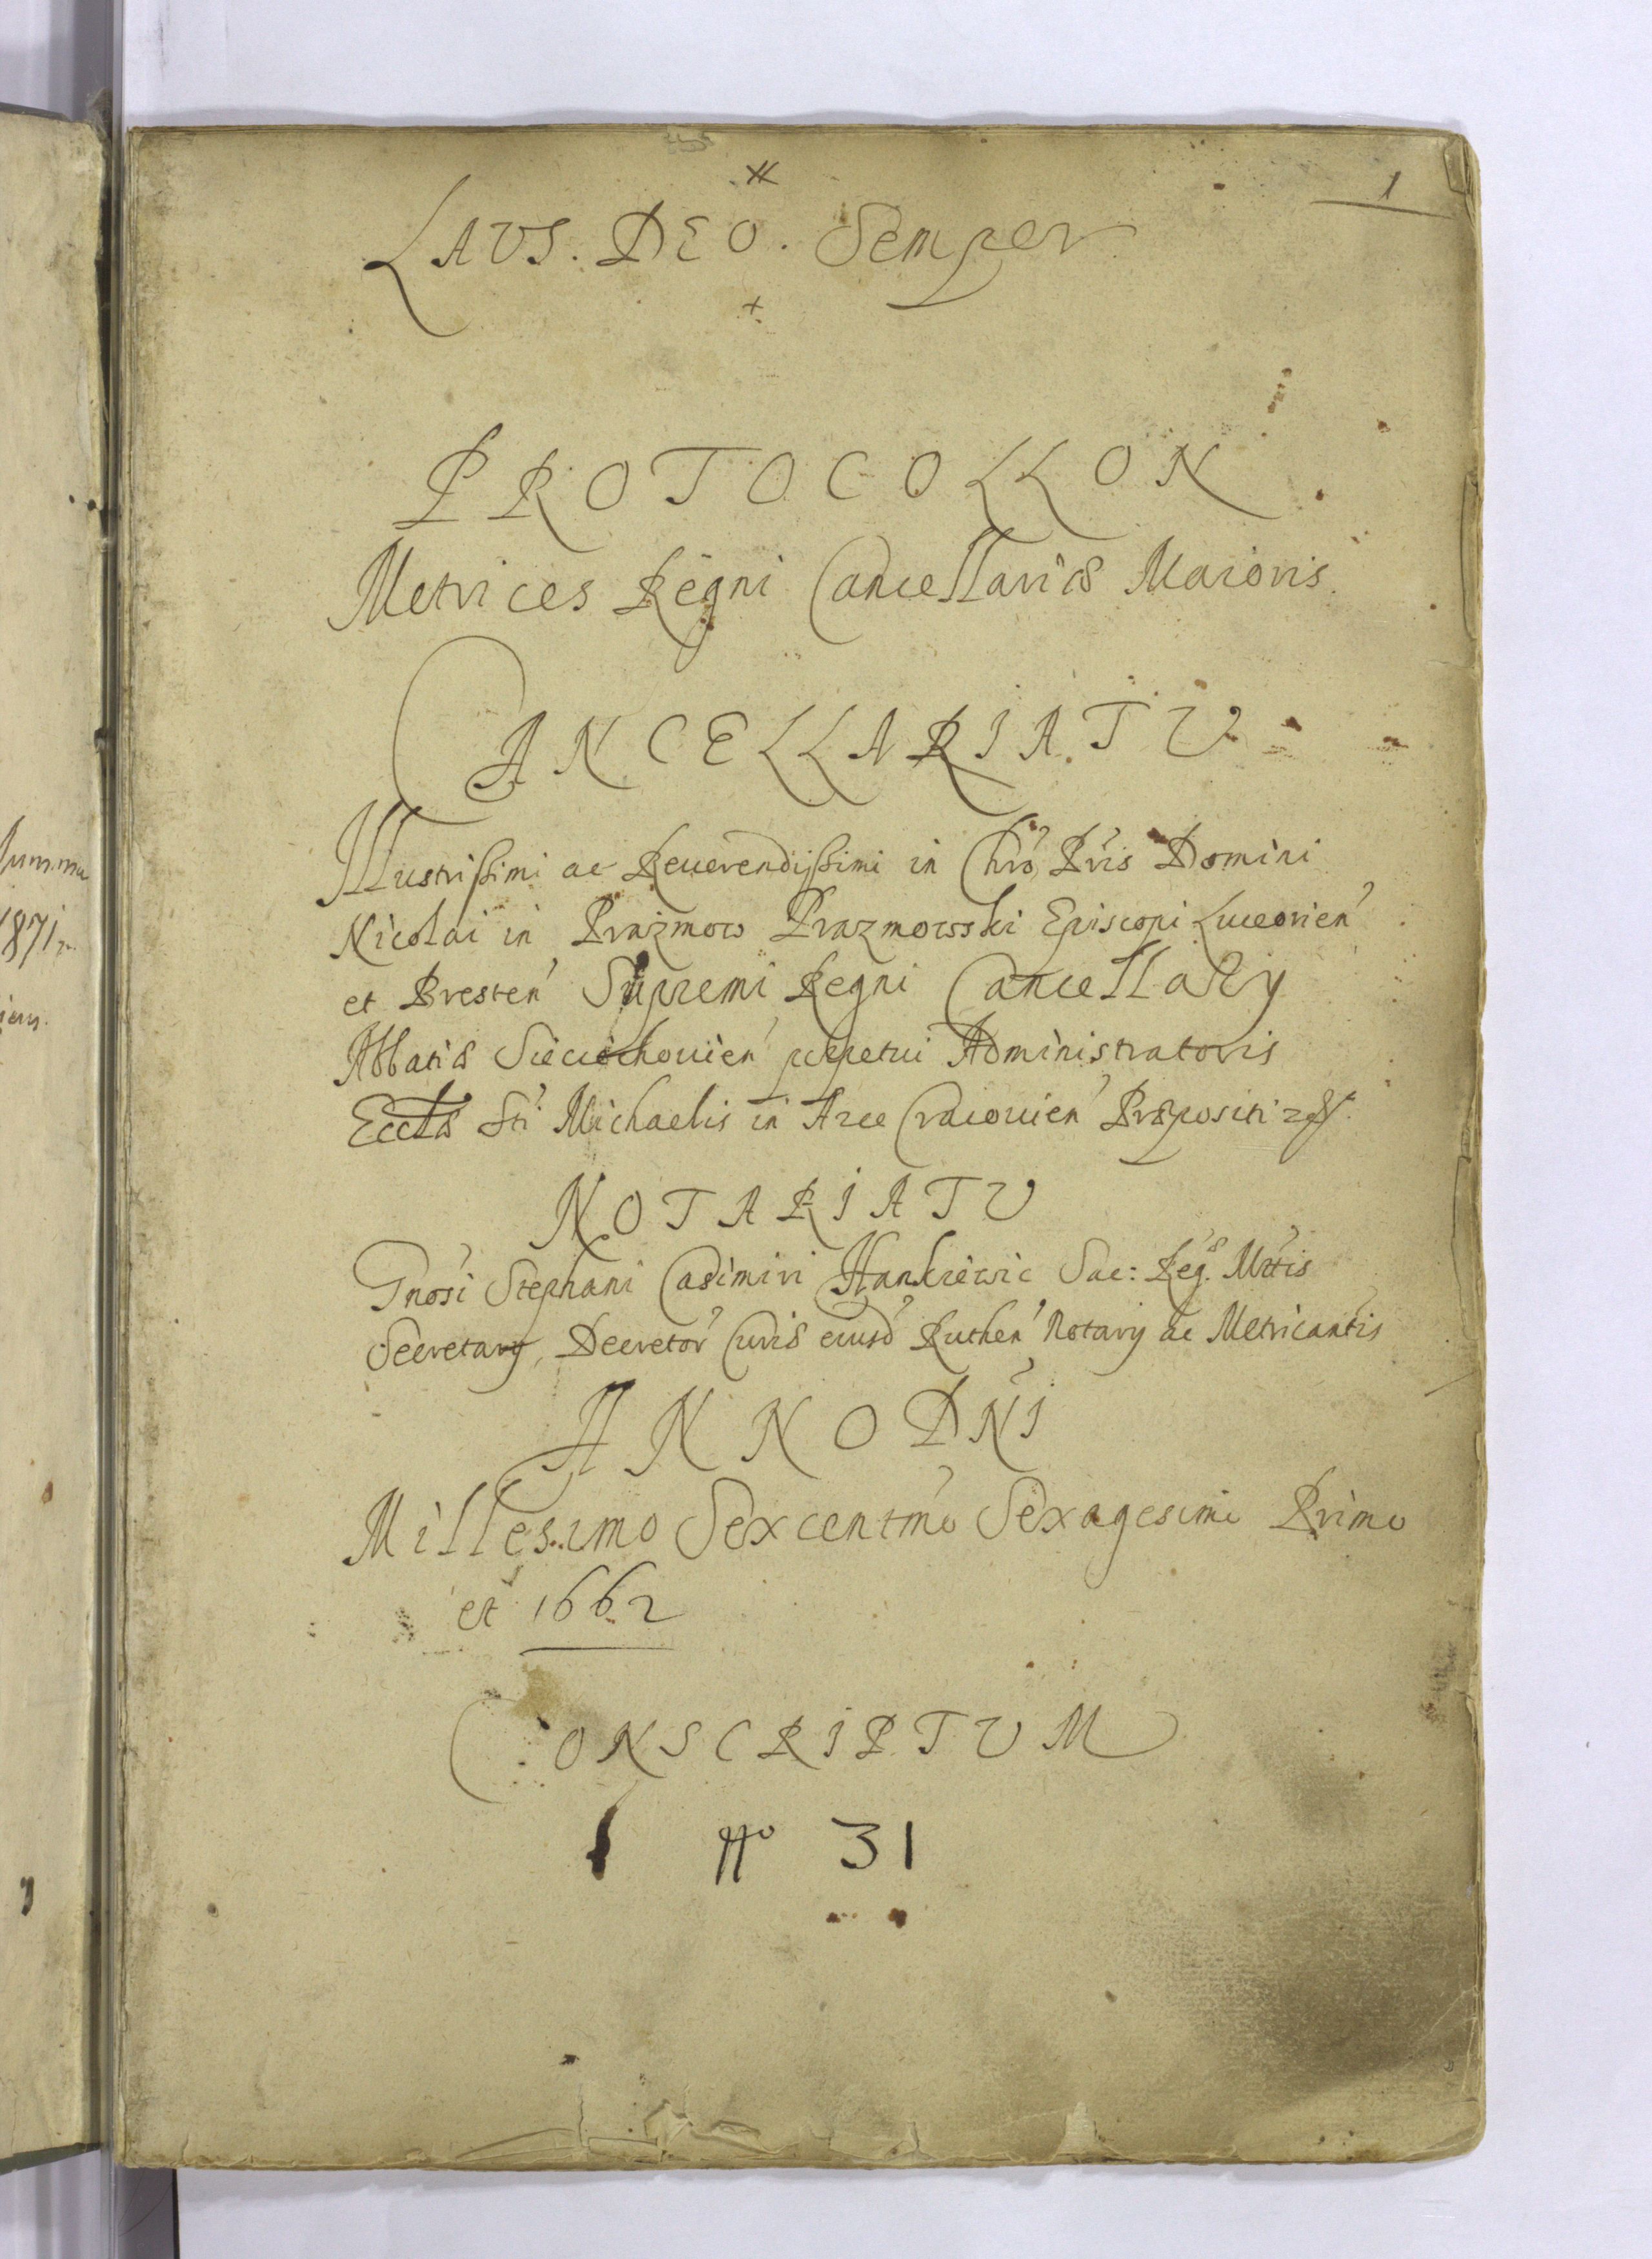 1
LAVS. DEO. Semper
PROTOCOLLON
Metrices Regni Cancellariæ Maioris.
CANCELLARIATV
Illustrissimi ac Reuerendissimi in Chro Pris Domini
Nicolai in Prazmow Prazmowski Episcopi Luceorien
et Bresten Supremi Regni Cancellary
Abbatiæ Sieciechouien ppetui Administratoris
Eccliæ Sti Michaelis in Arce Cracouien Præpositi
NOTARIATV
Gnosi Stephani Casimiri Hankiewic Sac: Reg. Mtis
Secretary, Decretor Curiæ eiusd Ruthen Notary ac Metricantis
ANNO DNI
Millesimo Sexcentmo Sexagesimo Primo
et 1662
CONSCRIPTUM
No 31
Summa
1871